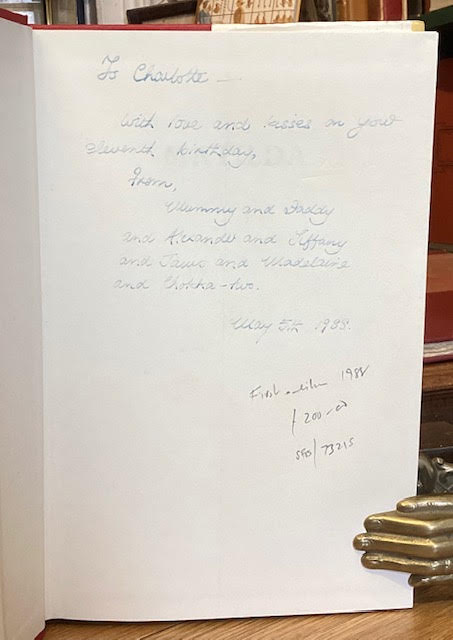 To Charlotte —
With love and kisses on your
eleventh birthday,
From,
Mummy and Daddy
and Alexander and Tiffany
and Jaws and Madelaine
and Chokka-two.
May 5th 1988.
First edition 1988
£200-00
/ 73215